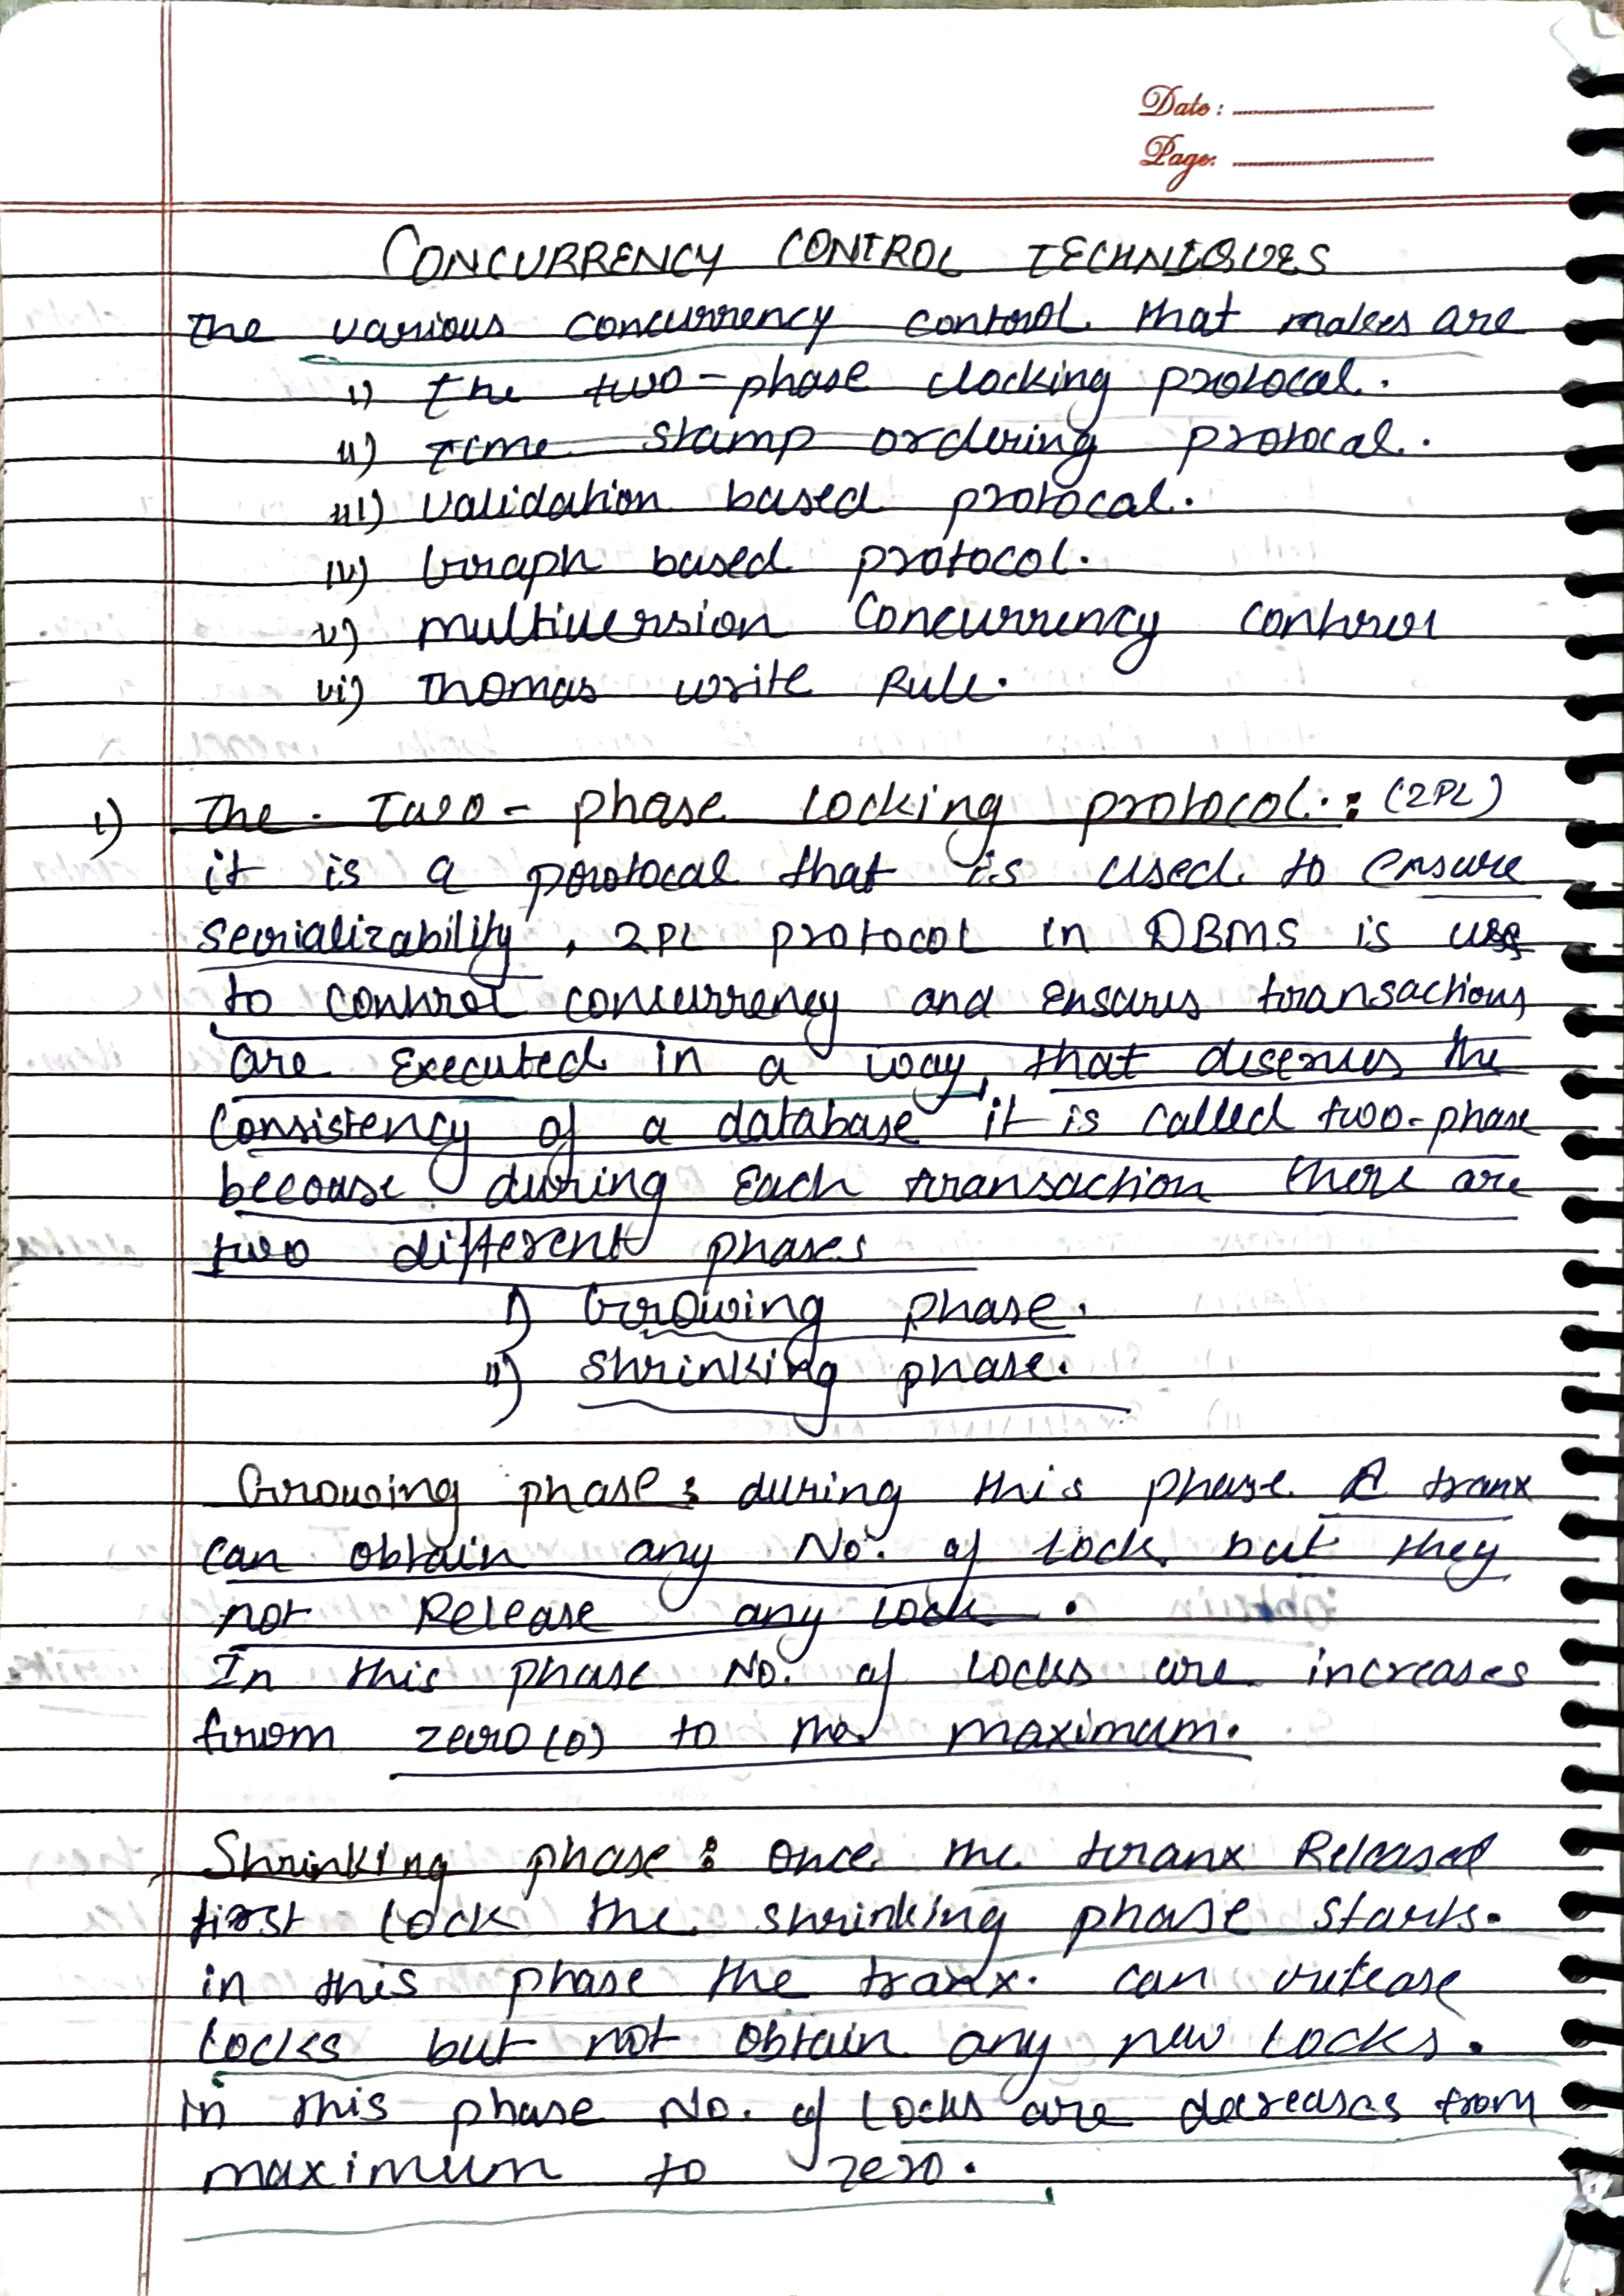 Date:
Page:
CONCURRENCY CONTROL TECHNIQUES
The various concurrency control that makes are
i) The two-phase clocking protocal.
ii) Time stamp ordering protocal.
iii) validation based protocal.
iv) Graph based protocol.
v) multiversion Concurrency control
vi) Thomas write Rule.
i) The Two-phase locking protocol: (2PL)
it is a protocal that is used to ensure
serializability, 2PL protocol in DBMS is use
to control concurrency and ensures transactions
are Executed in a way, that deserves the
Consistency of a database it is called two-phase
because during Each transaction there are
two different phases
i) Growing phase.
ii) Shrinking phase.
Growing phase: during this phase A tranx
can obtain any No. of lock but they
not Release any lock.
In this phase No. of Locks are increases
from zero(0) to the maximum.
Shrinking phase: once the tranx Released
first lock the shrinking phase starts.
in this phase the tranx. can release
locks but not obtain any new locks.
in this phase No. of Locks are decreases from
maximum to zero.